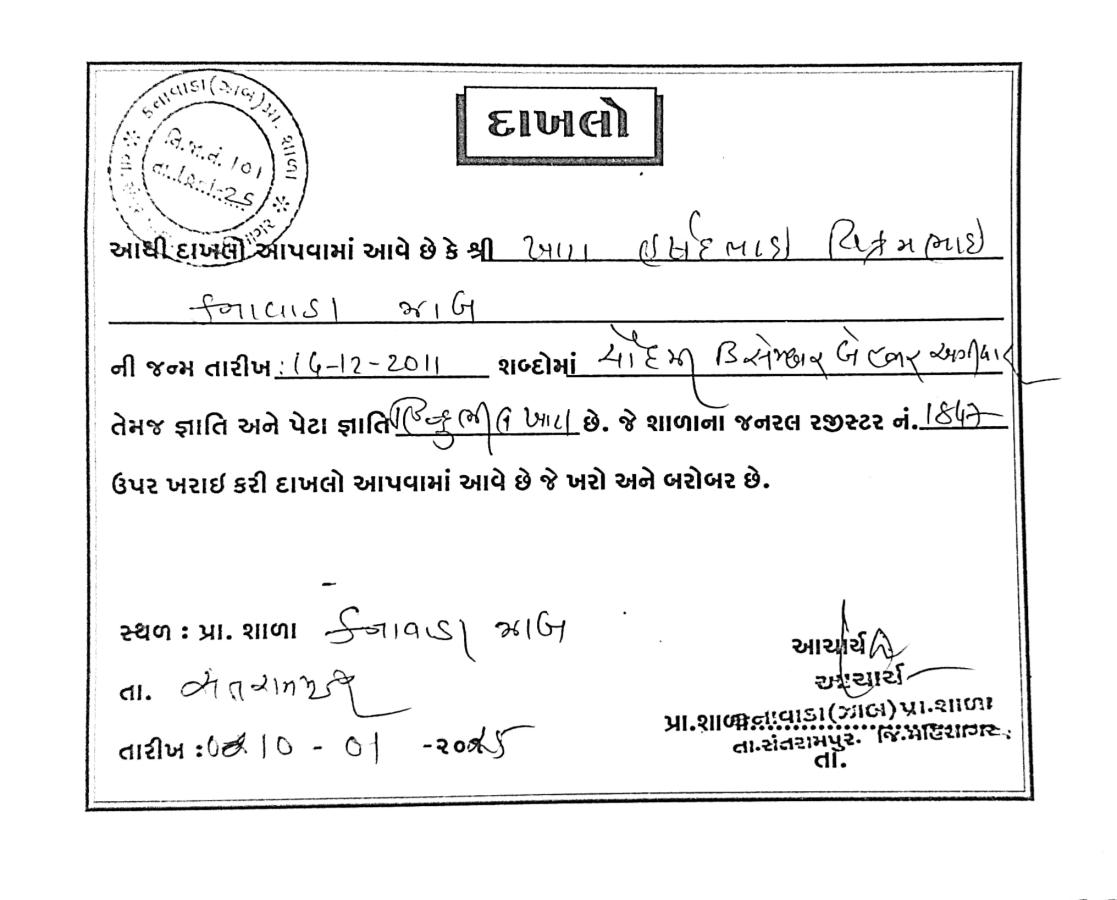 કનાવાડા(ઝાબ) પ્રા. શાળા
વિ.જા.નં. 101
દાખલો
આથી દાખલો આપવામાં આવે છે કે શ્રી ખાંટ વિક્રમભાઇ
કનાવાડા ઝાબ
ની જન્મ તારીખ : 14-12-2011 શબ્દોમાં ચૌદમી ડિસેમ્બર બે હજાર અગીયાર
તેમજ જ્ઞાતિ અને પેટા જ્ઞાતિ ખાંટ છે. જે શાળાના જનરલ રજીસ્ટર નં. 1847
ઉપર ખરાઇ કરી દાખલો આપવામાં આવે છે જે ખરો અને બરોબર છે.
સ્થળ : પ્રા. શાળા કનાવાડા ઝાબ
તા. સંતરામપુર
તારીખ : 10 - 01 -૨૦૨5
આચાર્ય
આચાર્ય
પ્રા.શાળા કનાવાડા(ઝાબ) પ્રા.શાળા
તા.સંતરામપુર. જિ.મહિસાગર.
તા.